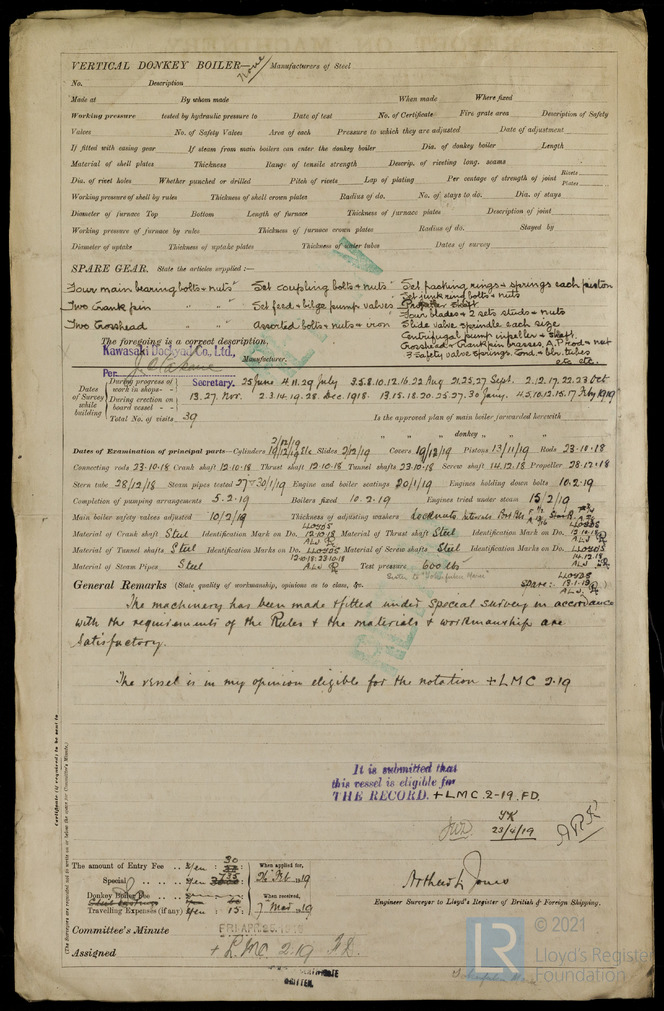 VERTICAL DONKEY BOILER— None Manufacturers of Steel
No. Description
Made at By whom made When made Where fixed
Working pressure tested by hydraulic pressure to Date of test No. of Certificate Fire grate area Description of Safety
Valves No. of Safety Valves Area of each Pressure to which they are adjusted Date of adjustment
If fitted with easing gear If steam from main boilers can enter the donkey boiler Dia. of donkey boiler Length
Material of shell plates Thickness Range of tensile strength Descrip. of riveting long. seams
Dia. of rivet holes Whether punched or drilled Pitch of rivets Lap of plating Per centage of strength of joint Rivets Plates
Working pressure of shell by rules Thickness of shell crown plates Radius of do. No. of stays to do. Dia. of stays
Diameter of furnace Top Bottom Length of furnace Thickness of furnace plates Description of joint
Working pressure of furnace by rules Thickness of furnace crown plates Radius of do. Stayed by
Diameter of uptake Thickness of uptake plates Thickness of water tubes Dates of survey
SPARE GEAR. State the articles supplied :—
Four main bearing bolts & nuts Set coupling bolts & nuts Set packing rings & springs each piston
Set junk ring bolts & nuts
Two Crank pin " " " Set feed & bilge pump valves Propeller shaft
Four blades & 2 sets studs & nuts
Two Crosshead " " " Assorted bolts & nuts & iron Slide valve spindle each size
Centrifugal pump impeller & shaft.
Crosshead & Crankpin brasses, A.P. rod & nut
3 Safety valve springs. Cond. & blr. tubes
etc etc
The foregoing is a correct description,
Kawasaki Dockyard Co., Ltd.,
Manufacturer.
Per
Secretary.
Dates of Survey while building
During progress of work in shops - - 25 June 4.11.29 July 3.5.8.10.12.16.22 Aug 21.25.27 Sept. 2.12.17.22.23 Oct
During erection on board vessel - - 13.27. Nov. 2.3.14.19.28. Dec. 1918. 13.15.18.20.25.27.30 Jany. 4.5.10.12.15.17 Feby 1919
Total No. of visits 39 Is the approved plan of main boiler forwarded herewith
" " " donkey " " "
Dates of Examination of principal parts—Cylinders 19/12/18 Slides 2/12/19 Covers 19/12/18 Pistons 13/11/19 Rods 23.10.18
Connecting rods 23.10.18 Crank shaft 12.10.18 Thrust shaft 12.10.18 Tunnel shafts 23.10.18 Screw shaft 14.12.18 Propeller 28.12.18
Stern tube 28/12/18 Steam pipes tested 27 & 30/1/19 Engine and boiler seatings 20/1/19 Engines holding down bolts 10.2.19
Completion of pumping arrangements 5.2.19 Boilers fixed 10.2.19 Engines tried under steam 15/2/19
Main boiler safety valves adjusted 10/2/19 Thickness of adjusting washers Locknuts
Material of Crank shaft Steel Identification Mark on Do. LLOYDS 12.10.18 ALJ Material of Thrust shaft Steel Identification Mark on Do. LLOYDS 12.10.18 ALJ
Material of Tunnel shafts Steel Identification Marks on Do. LLOYDS 12.10.18: 23.10.18 ALJ Material of Screw shafts Steel Identification Marks on Do. LLOYDS 14.12.18 ALJ
Material of Steam Pipes Steel Test pressure 600 lbs
General Remarks (State quality of workmanship, opinions as to class, &c. Spare: LLOYDS 13.1.19 ALJ
The machinery has been made & fitted under Special Survey in accordance
with the requirements of the Rules & the materials & workmanship are
satisfactory.
The vessel is in my opinion eligible for the notation + LMC 2.19
It is submitted that
this vessel is eligible for
THE RECORD. + LMC. 2-19. FD.
JWD
23/4/19
Certificate (if required) to be sent to
(The Surveyors are requested not to write on or below the space for Committee's Minute.)
The amount of Entry Fee .. Yen : 30
Special .. .. Yen 735
Donkey Boiler Fee
Travelling Expenses (if any) Yen : 15.
When applied for, 26 Feb 1919
When received, 7 Mar 1919
Arthur L Jones
Engineer Surveyor to Lloyd's Register of British & Foreign Shipping.
Committee's Minute FRI. APR 25 1919
Assigned + L.M.C. 2.19 F.D.
WRITTEN.
LR
© 2021
Lloyd's Register
Foundation